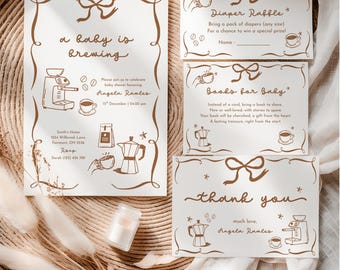 a baby is
brewing
Please join us to celebrate
baby shower honoring
Angela Ramles
Smith's Home
Fairmont, OH
Rsvp
Diaper Raffle
Bring a pack of diapers (any size)
For a chance to win a special prize!
Name
Books for Baby
Instead of a card, bring a book to share,
New or well-loved, with stories to spare.
Your book will be cherished, a gift from the heart
A lasting treasure, right from the start!
thank you
much love,
Angela Ramles